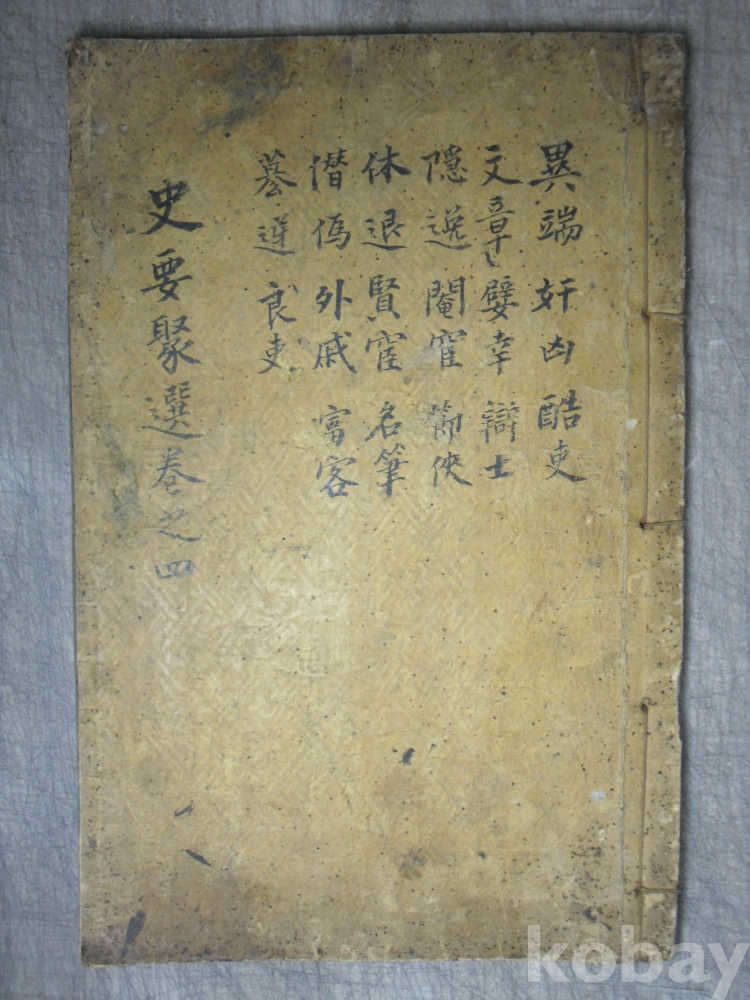 異端 奸凶 酷吏
文章 嬖幸 辯士
隱逸 閹宦 節俠
休退 賢宦 名筆
僭僞 外戚 富客
簒逆 良吏
史要聚選卷之四
kobay